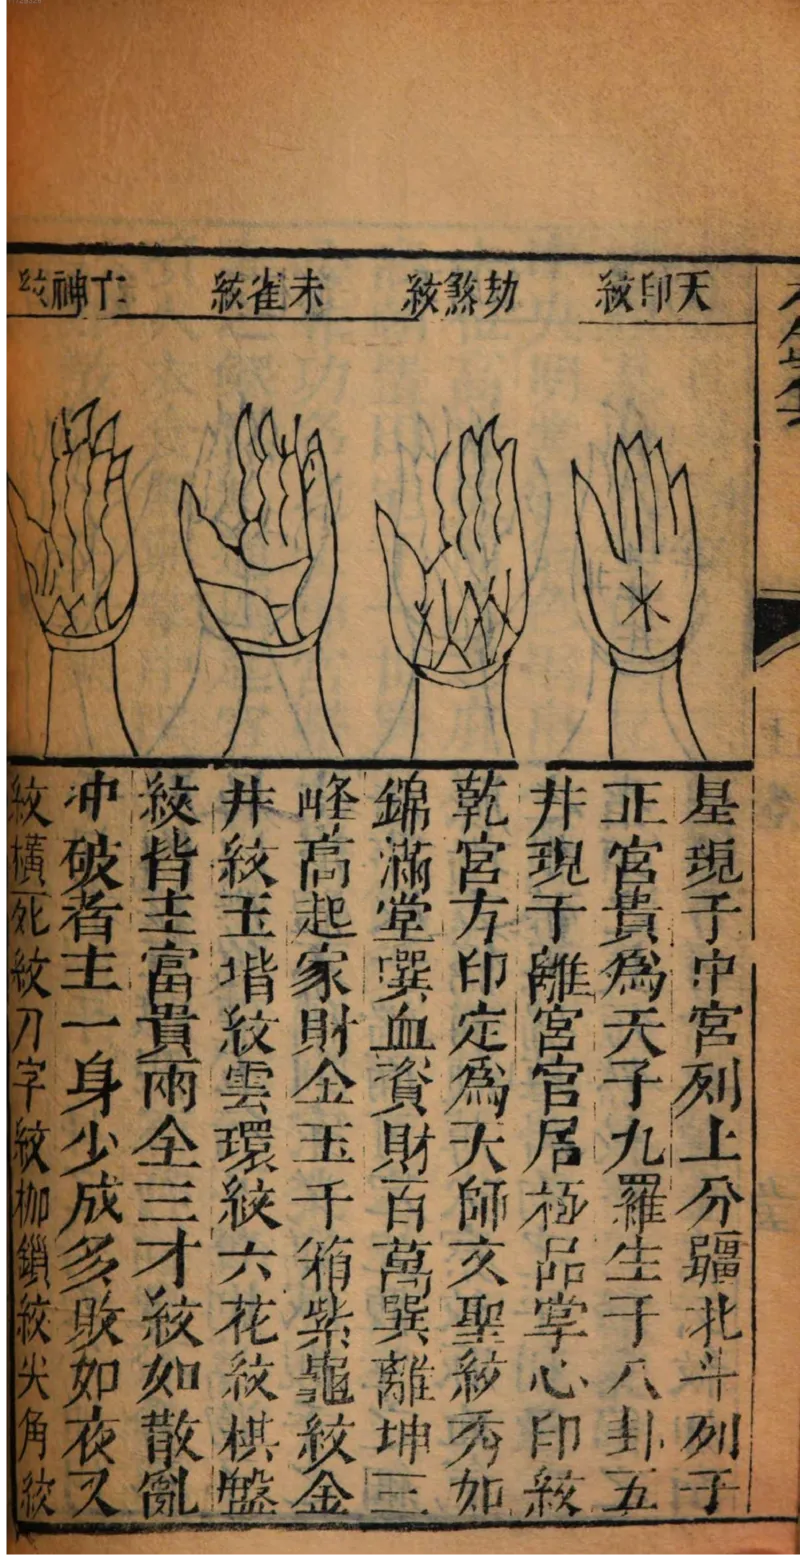 天印紋
劫煞紋
未雀紋
亡神紋
星現于中宮列上分疆北斗列于
正宮貴為天子九羅生于八卦五
井現于離宮官居極品掌心印紋
乾宮方印定為天師玄聖紋秀如
錦滿堂噀血資財百萬巽離坤三
峰高起家財金玉千箱紫龜紋金
井紋玉堦紋雲環紋六花紋棋盤
紋皆主富貴兩全三才紋如散亂
冲破者主一身少成多敗如夜叉
紋橫死紋刀字紋枷鎖紋尖角紋